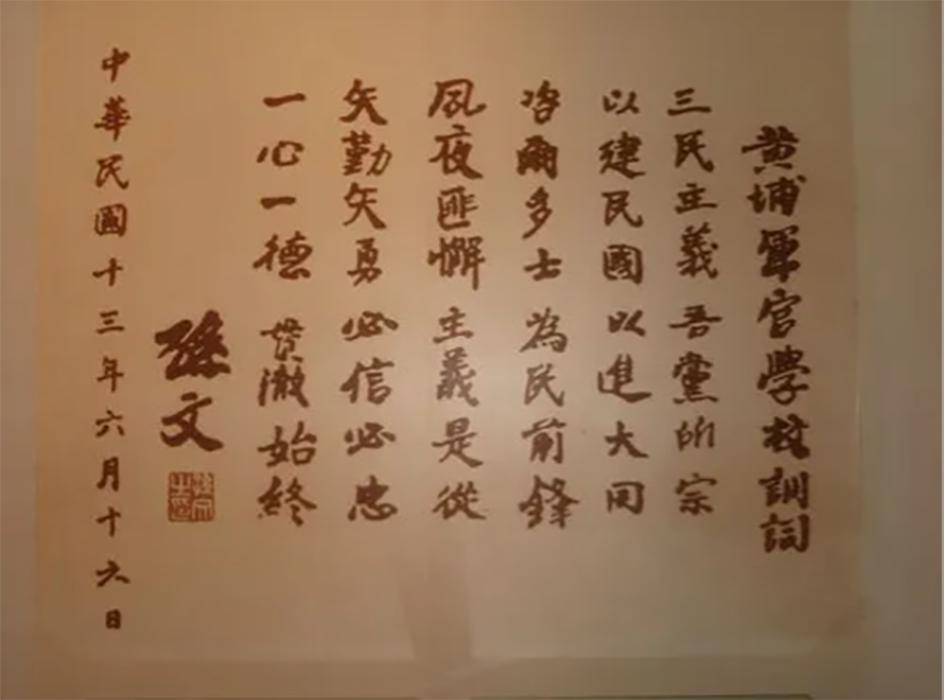 黄埔軍官學校訓詞
三民主義 吾黨所宗
以建民國 以進大同
咨爾多士 為民前鋒
夙夜匪懈 主義是從
矢勤矢勇 必信必忠
一心一德 貫澈始終
孫文
中華民國十三年六月十六日